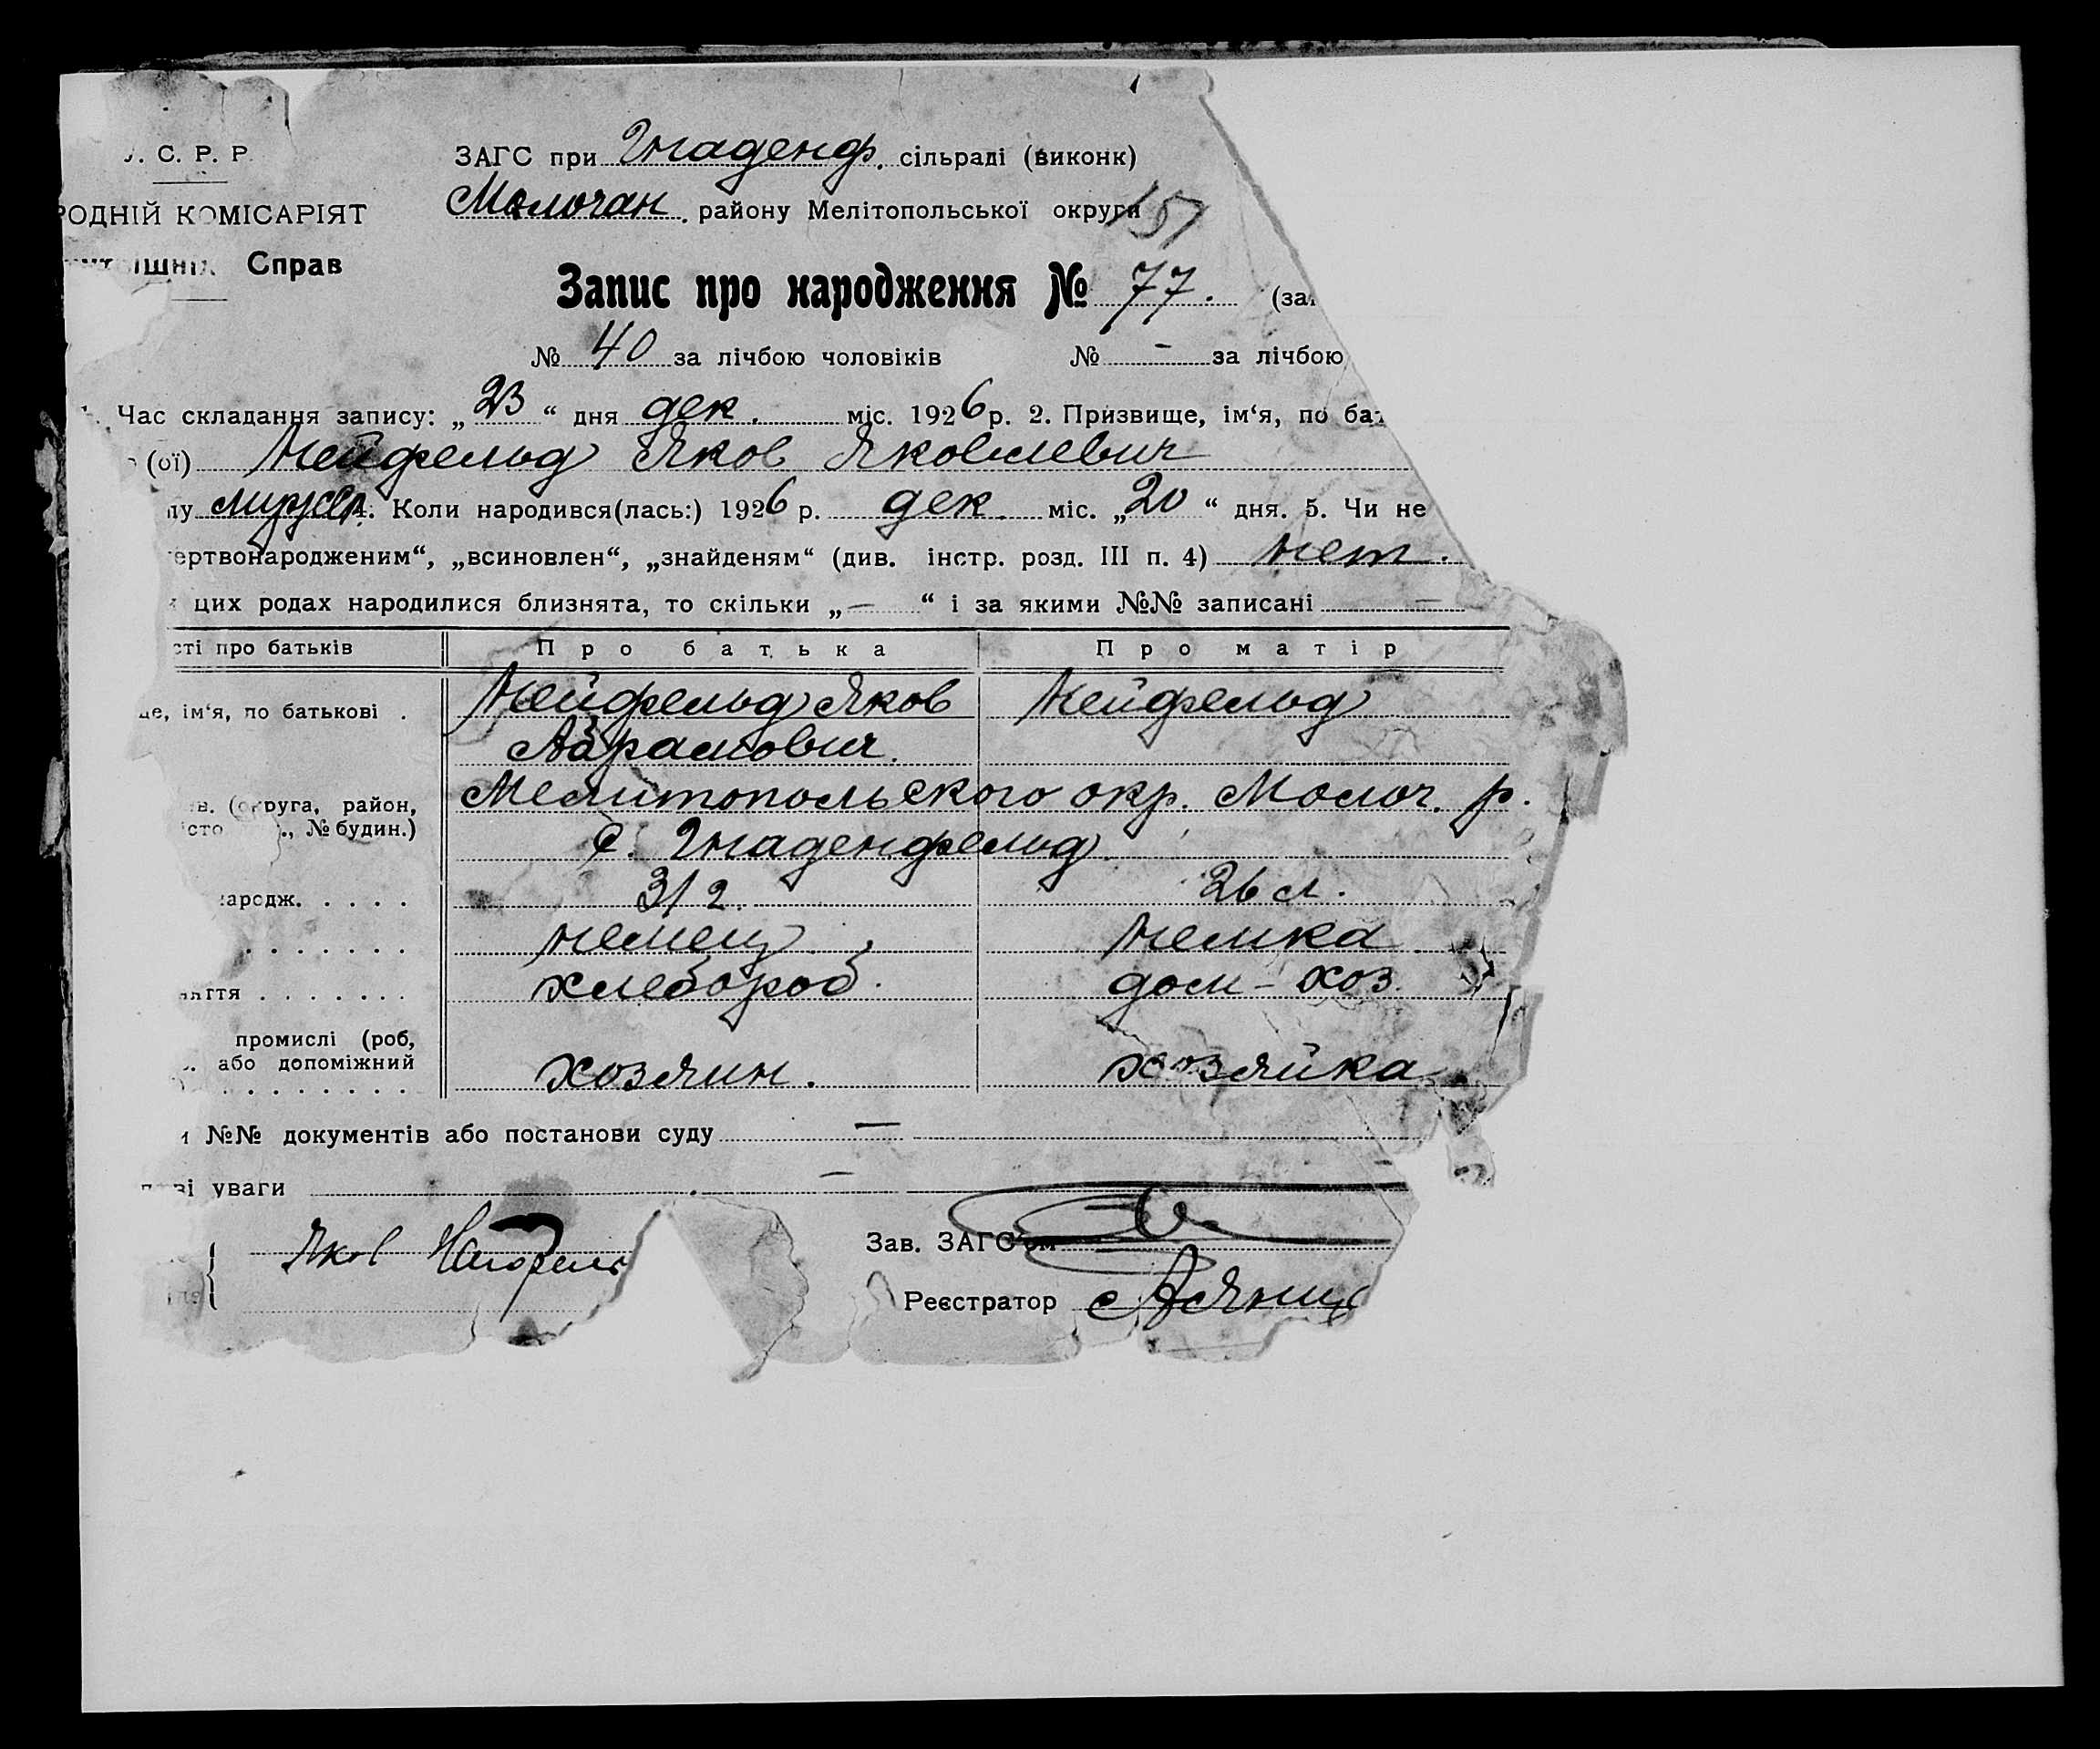 . С. Р. Р.
ЗАГС при Гнаденф. сільраді (виконк)
РОДНІЙ КОМІСАРІЯТ
Молочан. району Мелітопольської округи
157
Справ
Запис про народження № 77.
№ 40 за лічбою чоловіків № - за лічбою
Час складання запису: „23“ дня дек. міс. 1926 р. 2. Призвище, ім‘я, по бат
(ої) Нейфельд Яков Яковлевич
лу мужск. 4. Коли народився(лась:) 1926 р. дек. міс. „20“ дня. 5. Чи не
ертвонародженим“, „всиновлен“, „знайденям“ (див. інстр. розд. III п. 4) нет.
цих родах народилися близнята, то скільки „—“ і за якими №№ записані —
сті про батьків Про батька Про матір
ще, ім‘я, по батькові . Нейфельд Яков Нейфельд
Абрамович.
Мелитопольского окр. Молоч. р.
в. (округа, район,
сто ., № будин.)
с. Гнаденфельд.
народж. . . . . 31 г. 26 л.
. . . . . . . немец немка
яття . . . . . . . хлебороб. дом-хоз.
промислі (роб,
або допоміжний
. . . . . . . . хозяин. хозяйка
№№ документів або постанови суду —
ві уваги —
Яков
Зав. ЗАГС‘ом
Реєстратор